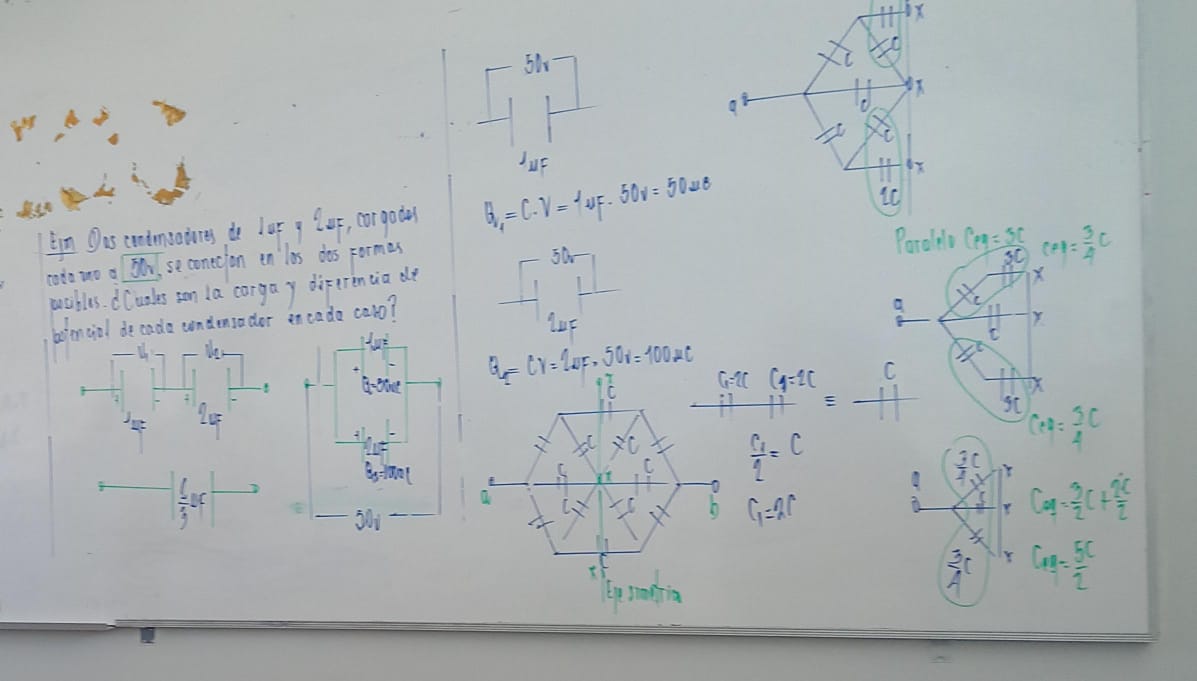 Ejm Dos condensadores de 1uF y 2uF, cargados
cada uno a 50v, se conectan en las dos formas
posibles. ¿Cuales son la carga y diferencia de
potencial de cada condensador en cada caso?
V₁ V₂
+ - + -
1uF 2uF
1uF
+ -
+ 2uF -
50v
50v
1uF
Q₁ = C·V = 1uF. 50v = 50uC
50v
2uF
Q₂ = CV = 2uF. 50v = 100uC
C
C C
C C
C C
a b
x
C
x
Eje simetria
C₁=2C C₁=2C ≡ C
C₁/2 = C
C₁=2C
x
C C
a C x
C C x
2C
Paralelo Ceq = 3C Ceq = 3/4 C
3C
x
C
a C x
C
x
3C
Ceq = 3/4 C
3/4 C
x
a C x
x
3/4 C
Ceq = 3/2 C + 2C/2
Ceq = 5C/2